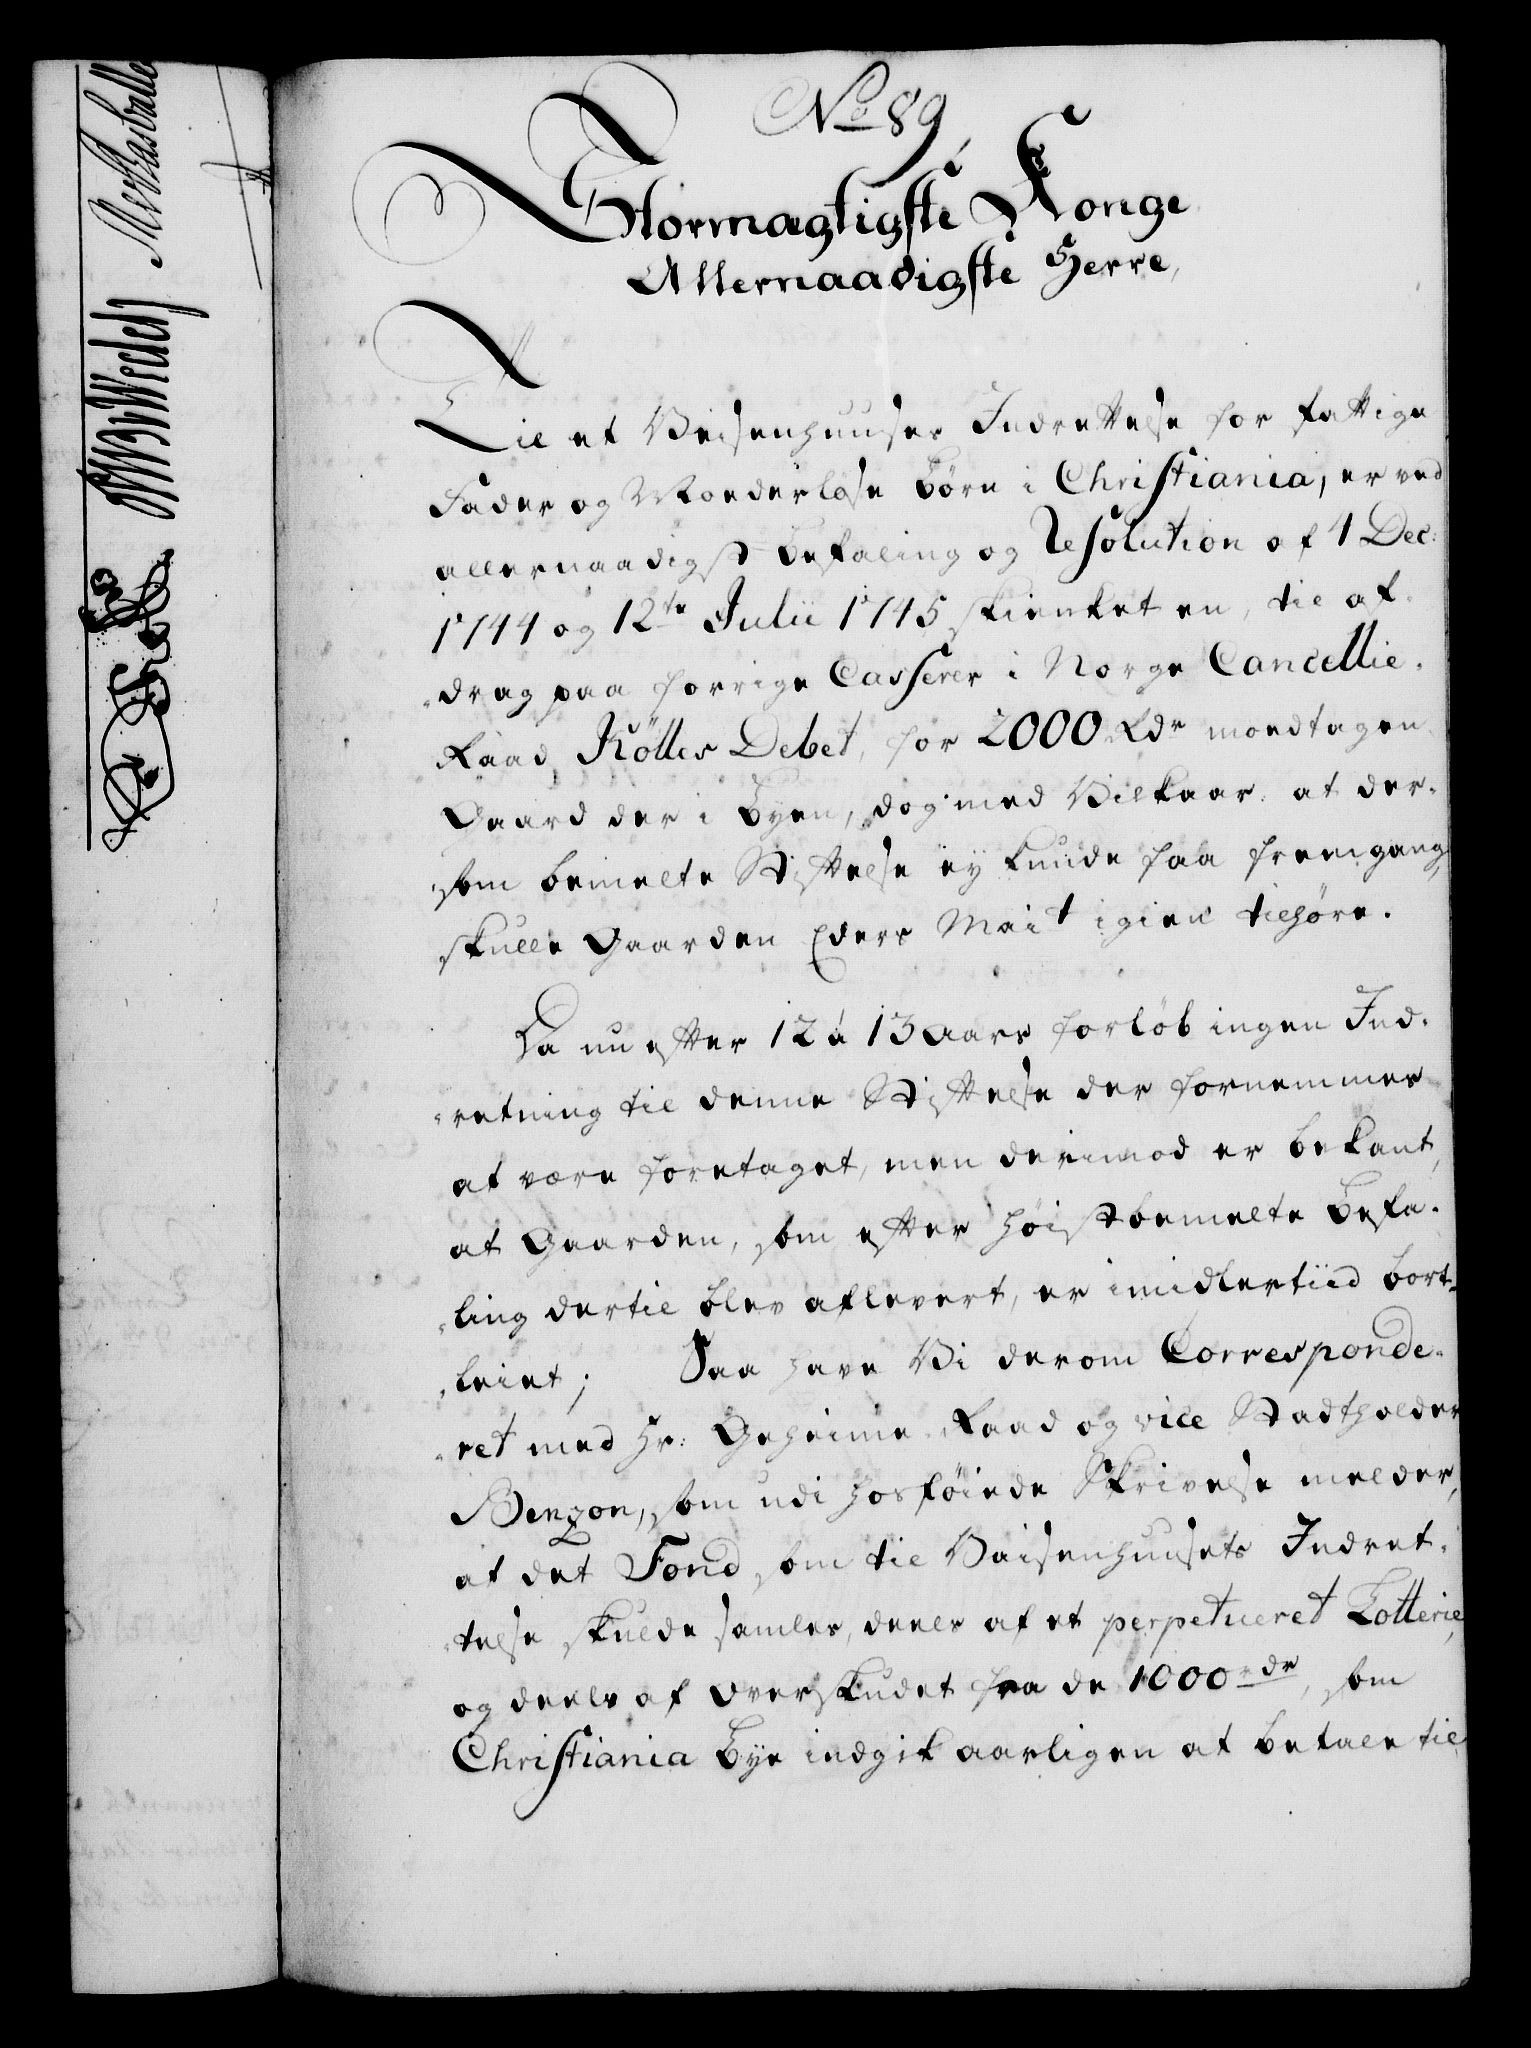 No 89
Stormægtigste Konge
Allernaadigste Herre,
Til et Veisenhuuses Indrettelse for fattige
Fader og Moederløse Børn i Christiania, er ved
allernaadigst Befaling og Resolution af 4 Dec:
1744 og 12te Julii 1745 skienket en, til af-
drag paa forrige Casserer i Norge Cancellie-
Raad Kölles Debet, for 2000 Rdr modtagen
Gaard der i Byen, dog med Vilkaar, at der-
som bemelte Stiftelse ey kunde faa fremgang,
skulle Gaarden Eders Mait igien tilhøre.
Da nu efter 12 à 13 Aars forløb ingen Ind-
retning til denne Stiftelse der fornemmes
at være foretaget, men derimod er bekant,
at Gaarden, som efter høistbemelte Befa-
ling dertil blev aflevert, er imidlertiid bort-
leiet; Saa have Vi derom Corresponde-
ret med Hr: Geheime-Raad og vice Stadtholder
Benzon, som udi hosføiede Skrivelse melder,
at det Fond, som til Vaisenhuusets Indret-
telse skulde samles, deels af et perpetueret Lotterie,
og deels af Overskudet fra de 1000 rdr, som
Christiania Bye indgik aarligen at betale til